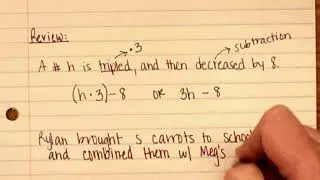 Review:
·3
subtraction
A # h is tripled, and then decreased by 8.
(h·3)-8 or 3h-8
Rylan brought s carrots to scho
and combined them w/ Meg's